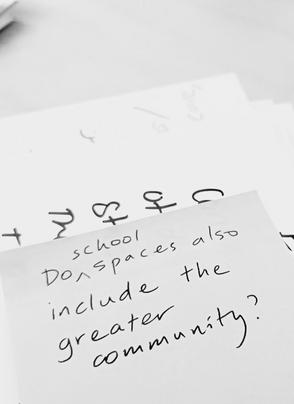 school
Do ^ spaces also
include the
greater
community?